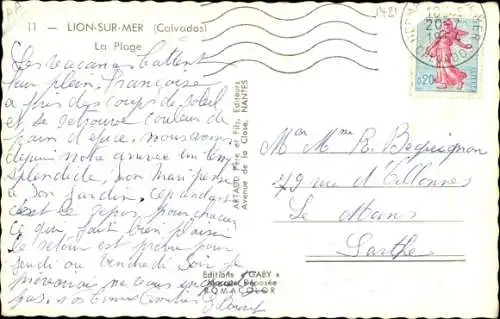 11 - LION-SUR-MER (Calvados)
La Plage
Les vacances battent
leur plein, Françoise
a pris des coups de soleil
et se retrouve couleur de
pain d'épice, nous avons
depuis notre arrivée un temps
splendide, son mari pense
à son jardin, cependant
c'est le repos, pour chacun
ce qui fait bien plaisir
le retour est prévu pour
jeudi ou vendredi soir je
ne
pas, nos bonnes
ARTAUD Père et Fils, Editeurs
Avenue de la Close, NANTES
Editions "GABY"
Marque Déposée
ROMACOLOR
1481
CALVADOS
0,20
Mr Mme R. Bequignon
49 rue d'
Le Mans
Sarthe